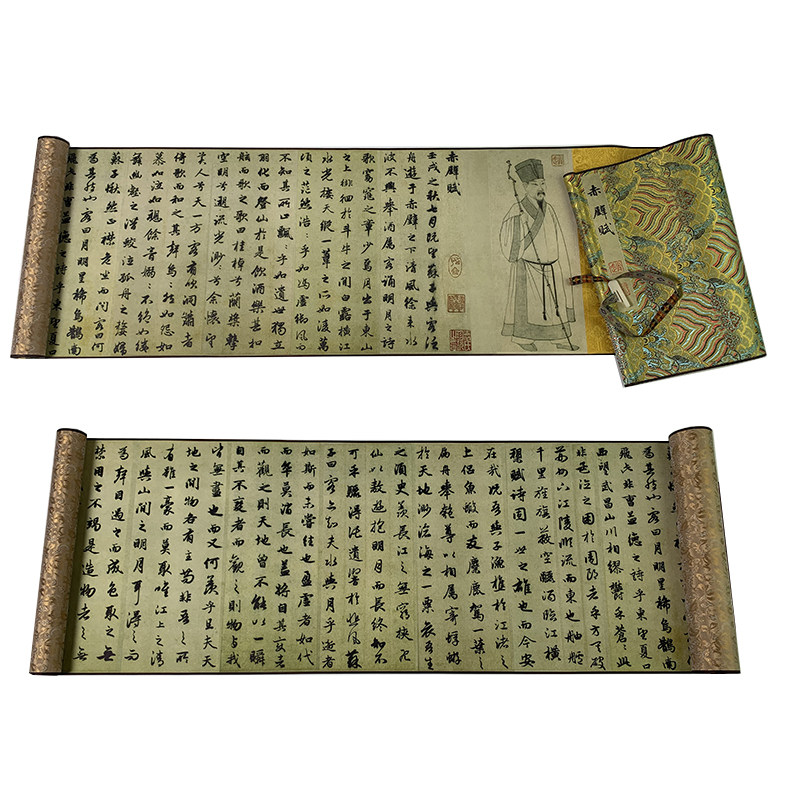 赤壁賦
赤壁賦
壬戌之秋七月既望蘇子與客泛
舟遊于赤壁之下清風徐來水
波不興舉酒屬客誦明月之詩
歌窈窕之章少焉月出于東山
之上徘徊於斗牛之間白露橫江
水光接天縱一葦之所如凌萬
頃之茫然浩〻乎如馮虛御風而
不知其所止飄〻乎如遺世獨立
羽化而登仙於是飲酒樂甚扣
舷而歌之歌曰桂棹兮蘭槳擊
空明兮遡流光渺〻兮余懷望
美人兮天一方客有吹洞簫者
倚歌而和之其聲嗚〻然如怨如
慕如泣如訴餘音嫋〻不絕如縷
舞幽壑之潛蛟泣孤舟之嫠婦
蘇子愀然正襟危坐而問客曰何
為其然也客曰月明星稀烏鵲南
飛此非曹孟德之詩乎東望夏口
為其然也客曰月明星稀烏鵲南
飛此非曹孟德之詩乎東望夏口
西望武昌山川相繆鬱乎蒼〻此
非孟德之困於周郎者乎方其破
荊州下江陵順流而東也舳艫
千里旌旗蔽空釃酒臨江橫
槊賦詩固一世之雄也而今安
在哉況吾與子漁樵於江渚之
上侶魚蝦而友麋鹿駕一葉之
扁舟舉匏尊以相屬寄蜉蝣
於天地渺滄海之一粟哀吾生
之須臾羨長江之無窮挾飛
仙以敖遊抱明月而長終知不
可乎驟得託遺響於悲風蘇
子曰客亦知夫水與月乎逝者
如斯而未嘗往也盈虛者如代
而卒莫消長也蓋將自其變者
而觀之則天地曾不能以一瞬
自其不變者而觀之則物與我
皆無盡也而又何羨乎且夫天
地之間物各有主苟非吾之所
有雖一豪而莫取唯江上之清
風與山間之明月耳得之而
為聲目遇之而成色取之無
禁用之不竭是造物者之無